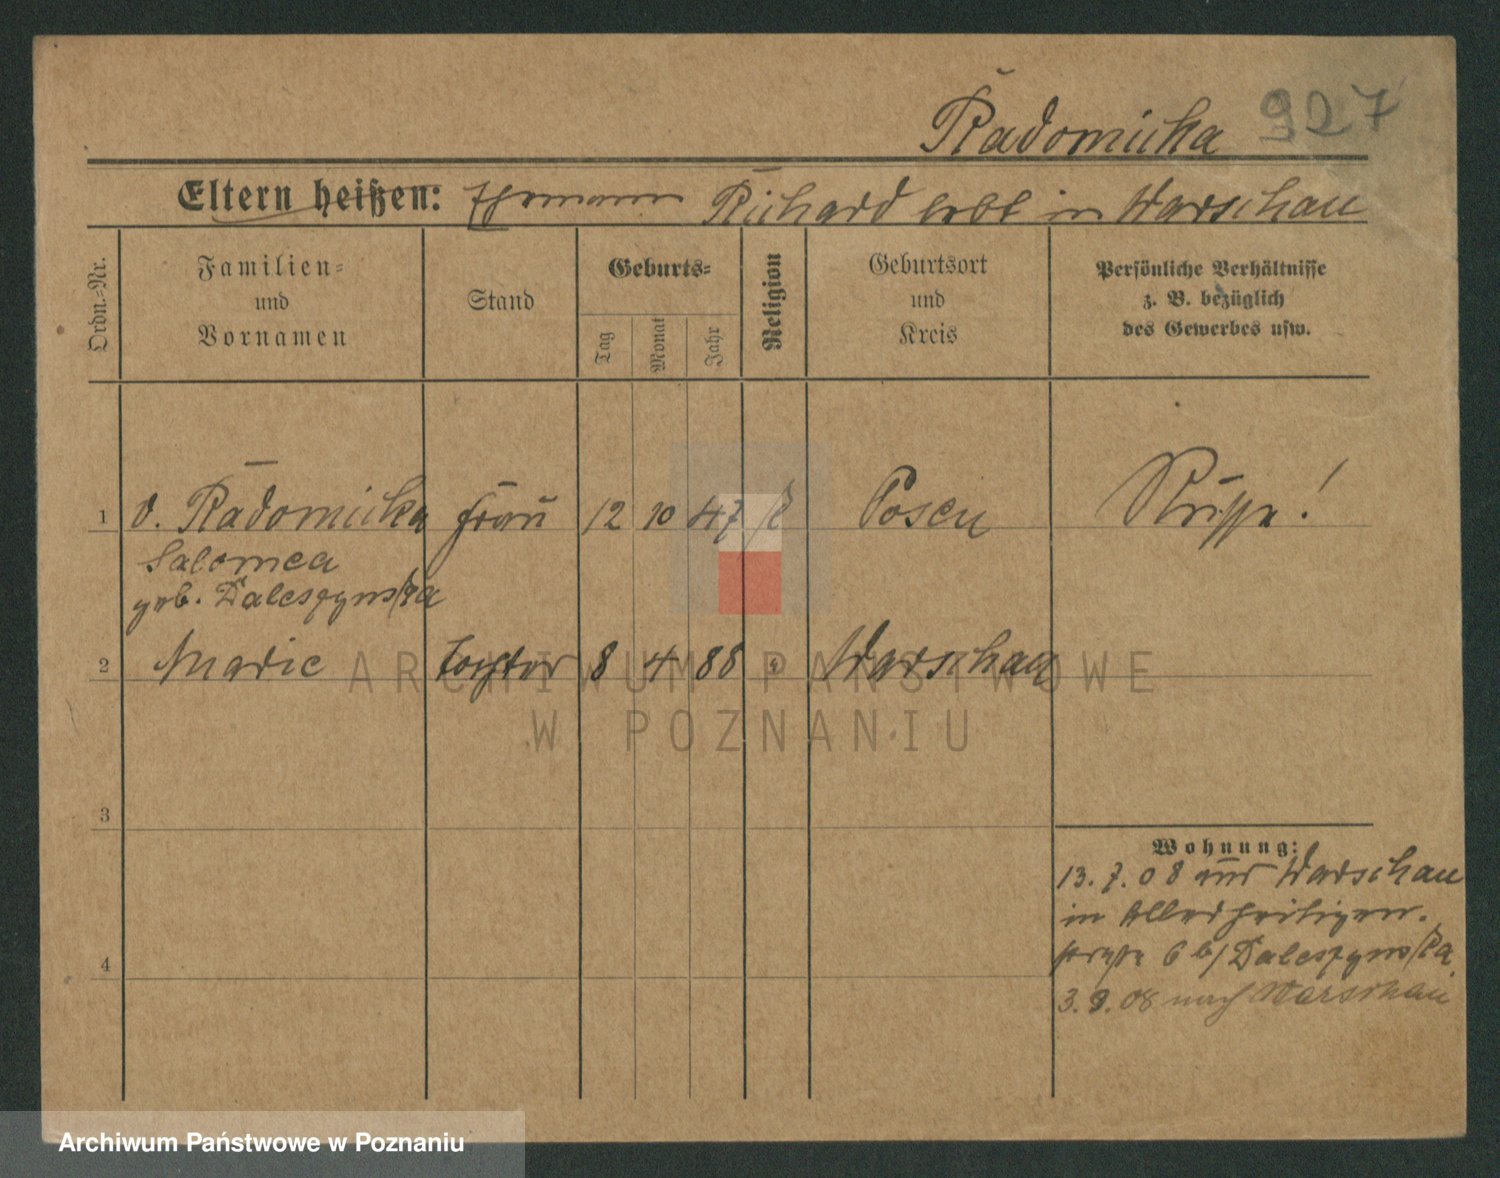 Radomicka 927
Eltern heißen: Ehemann Richard lebt in Warschau
Ordn.-Nr.
Familien-
und
Vornamen
Stand
Geburts-
Tag
Monat
Jahr
Religion
Geburtsort
und
Kreis
Persönliche Verhältnisse
z. B. bezüglich
des Gewerbes usw.
1 v. Radomicka Frau 12 10 47 k Posen Russe!
Salomea
geb. Daleszynska
2 Marie Tochter 8 4 88 Warschau
3
4
Wohnung:
13. 7. 08 aus Warschau
in Allerheiligen-
straße 6 b/ Daleszynska
3. 9. 08 nach Warschau
ARCHIWUM PAŃSTWOWE
W POZNANIU
Archiwum Państwowe w Poznaniu